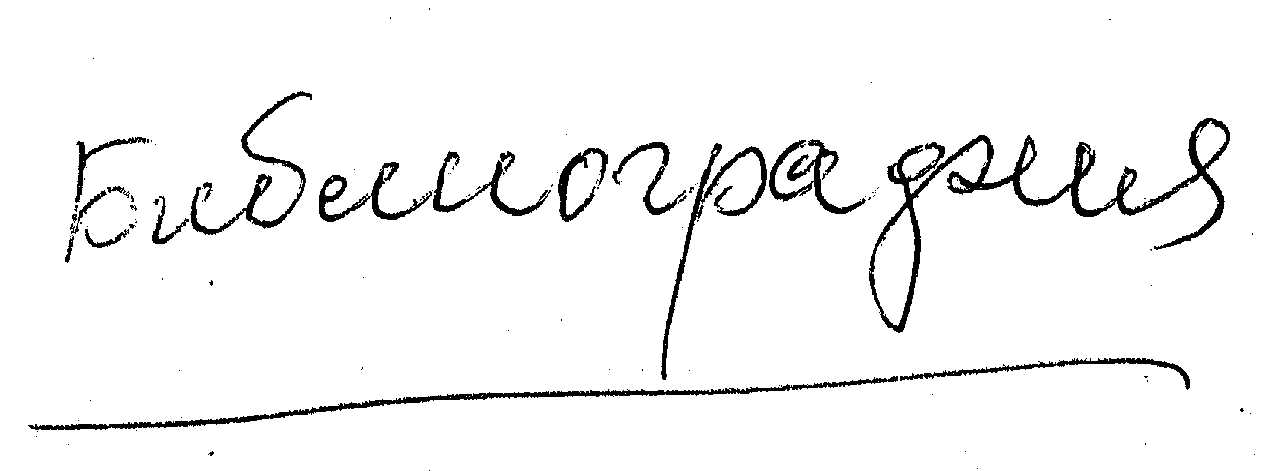 Библиография